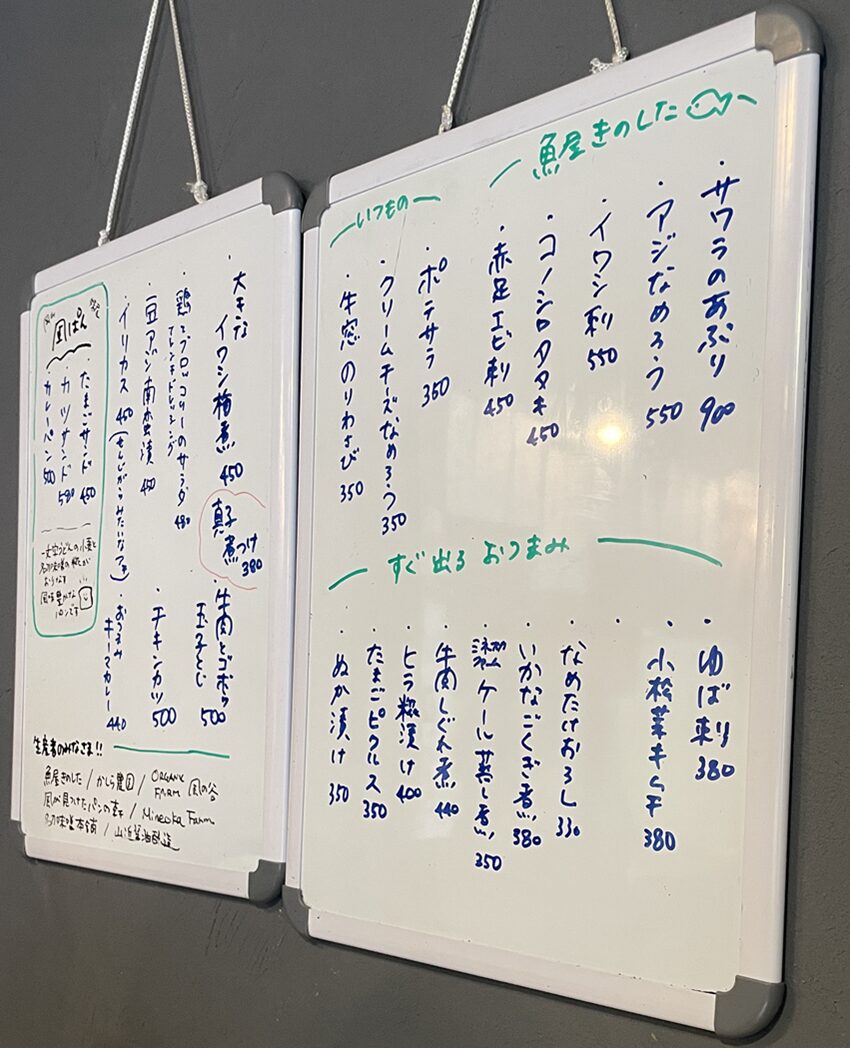 魚屋きのした
・サワラのあぶり 900
・アジなめろう 550
・イワシ刺 550
・コノシロタタキ 450
・赤足エビ刺 450
いつもの
・ポテサラ 350
・クリームチーズなめろう 350
・牛窓のりわさび 350
すぐ出るおつまみ
・ゆば刺 380
・小松菜キムチ 380
・
・なめたけおろし 330
・いかなごくぎ煮 380
・ミネオカファーム ケール蒸し煮 350
・牛肉しぐれ煮 440
・ヒラ糀漬け 400
・たまごピクルス 350
・ぬか漬け 350
・大きなイワシ梅煮 450
真子煮つけ 380
・鶏とブロッコリーのサラダ 480
フレンチドレッシング
・豆アジ南蛮漬 450
・イリカス 450
・牛肉とゴボウ
玉子とじ 500
・チキンカツ 500
・おつまみ
キーマカレー 440
凬ぱん
・たまごサンド 450
・カツサンド 580
・カレーパン 500
風味豊かな
パンです
生産者のみなさま!!
魚屋きのした / かしら農園 / ORGANIC FARM 風の谷
風が見つけたパンの耳 / Mineoka Farm
名刀味噌本舗 / 山近醤油醸造